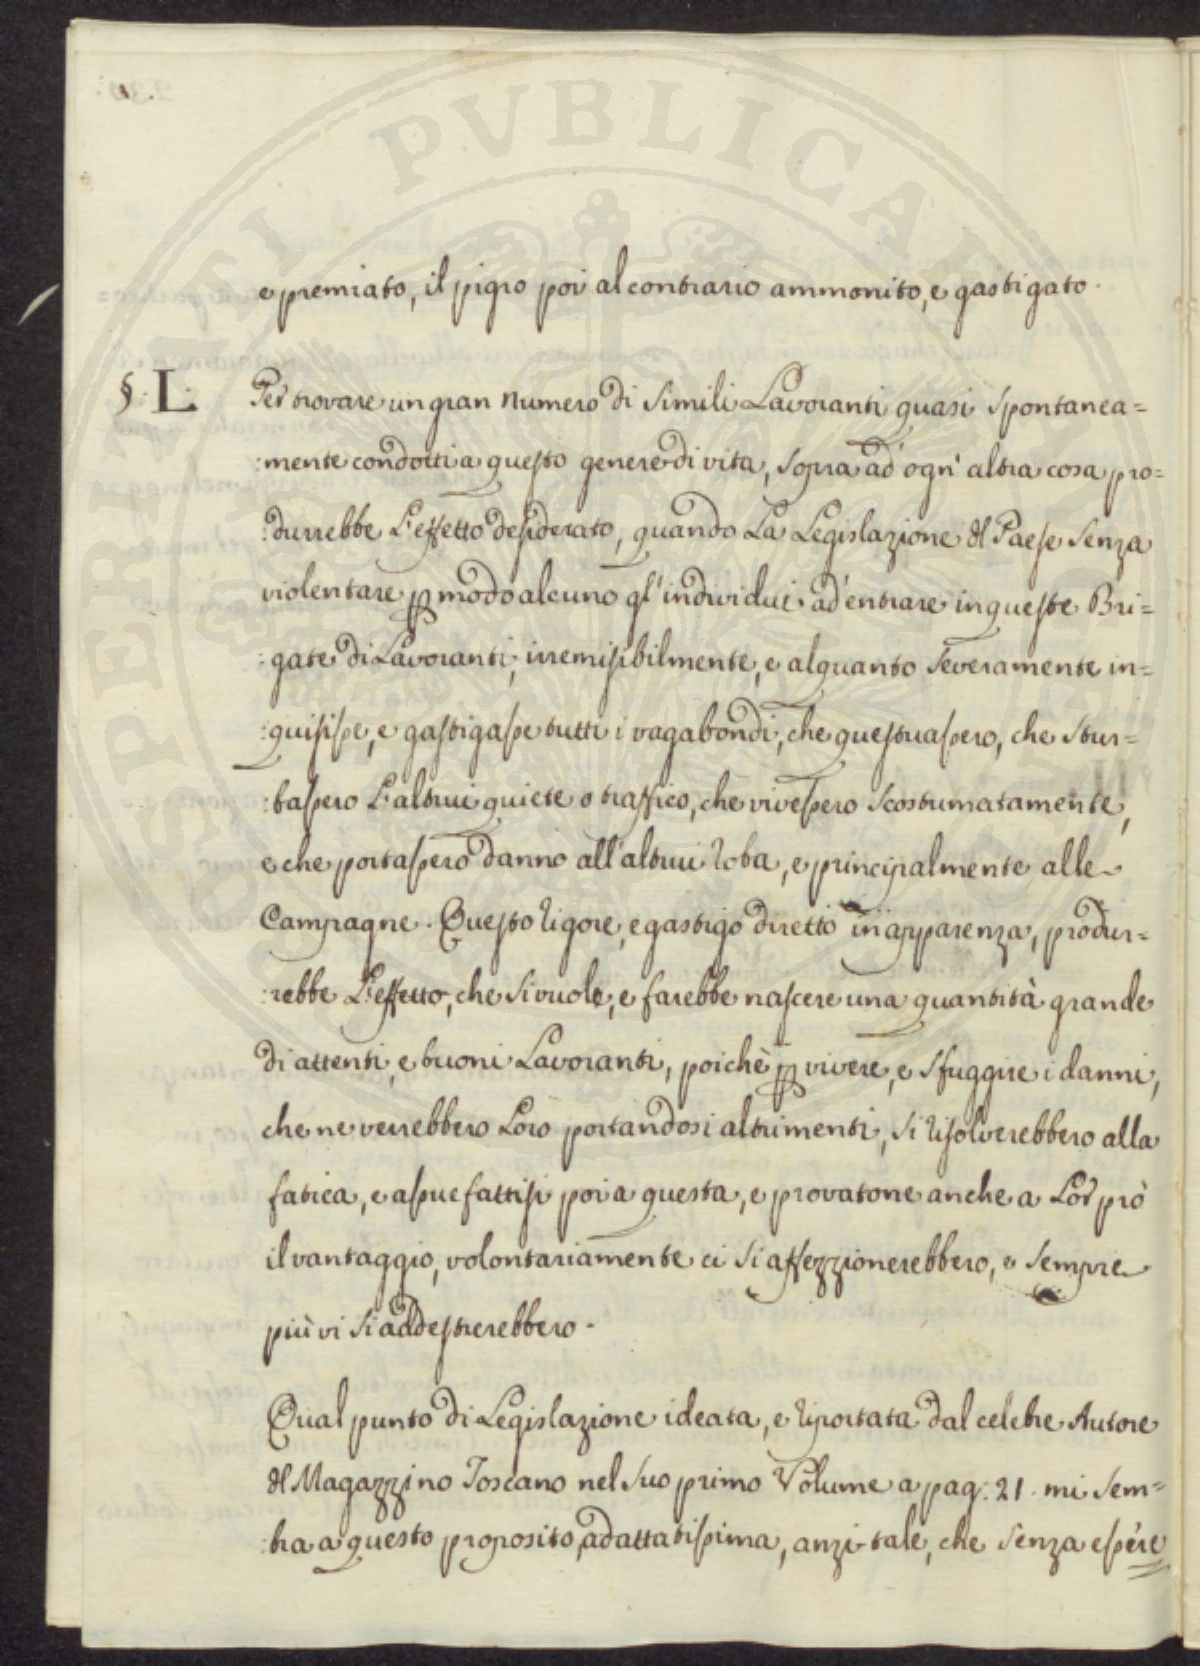 PROSPERITATI PVBLICAE
e premiato, il pigro poi al contrario ammonito, e gastigato.
§. L. Per trovare un gran numero di simili Lavoranti quasi spontanea=
:mente condotti a questo genere di vita, sopra ad' ogn' altra cosa pro=
:durrebbe L'effetto desiderato, quando La Legislazione del Paese senza
violentare p modo alcuno gl' individui ad' entrare in queste Bri=
:gate di Lavoranti, irremisibilmente, e alquanto severamente in=
:quisisse, e gastigasse tutti i vagabondi, che questuassero, che stur=
:bassero L'altrui quiete o traffico, che vivessero scostumatamente,
e che portassero danno all' altrui roba, e principalmente alle
Campagne. Questo rigore, e gastigo diretto in apparenza, produr=
:rebbe L'effetto, che si vuole, e farebbe nascere una quantità grande
di attenti, e buoni Lavoranti, poichè p vivere, e sfuggire i danni,
che ne verrebbero Loro portandosi altrimenti, si risolverebbero alla
fatica, e assuefattisi poi a questa, e provatone anche a Lor prò
il vantaggio, volontariamente ci si affezzionerebbero, e sempre
più vi si addestrerebbero.
Qual punto di Legislazione ideata, e riportata dal celebre Autore
del Magazzino Toscano nel suo primo Volume a pag: 21. mi sem=
:bra a questo proposito adattatissima, anzi tale, che senza essere